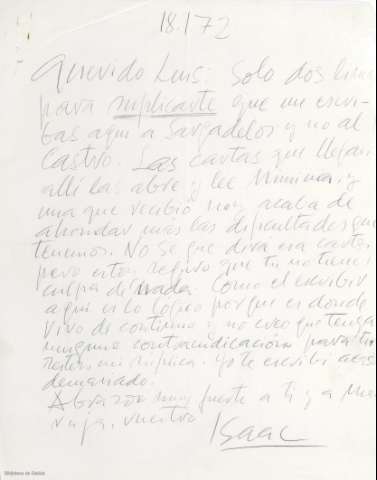 18.1.72
Querido Luis: Solo dos líneas
para suplicarte que me escri-
bas aquí a Sargadelos y no al
Castro. Las cartas que llegan
allí las abre y lee Mimina, y
una que recibió hoy acaba de
ahondar más las dificultades que
tenemos. No se que dira esa carta,
pero estoy seguro que tu no tienes
culpa de nada. Como el escribir
aqui es lo logico porque es donde
vivo de continuo y no creo que tenga
ninguna contraindicacion para tu
ni súplica. Yo te escribi
demasiado.
Abrazos muy fuerte a ti y a Ma-
ruja, vuestro
Isaac
Biblioteca de Galicia